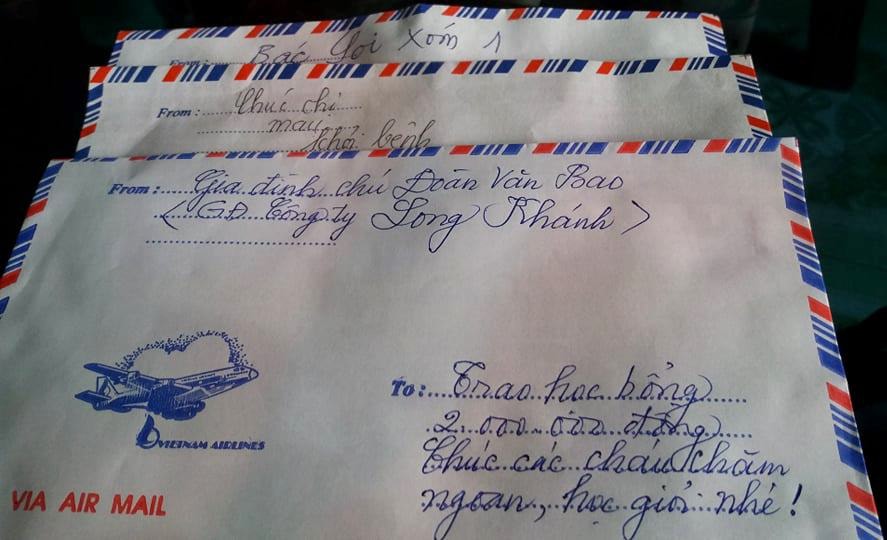 From: Bác Lợi Xóm 1
From: Chúc chị
mau
khỏi bệnh
From: Gia đình chú Đoàn Văn Bao
<GĐ Công ty Long Khánh>
VIETNAM AIRLINES
VIA AIR MAIL
To: Trao học bổng
2.000.000 đồng
Chúc các cháu chăm
ngoan, học giỏi nhé!